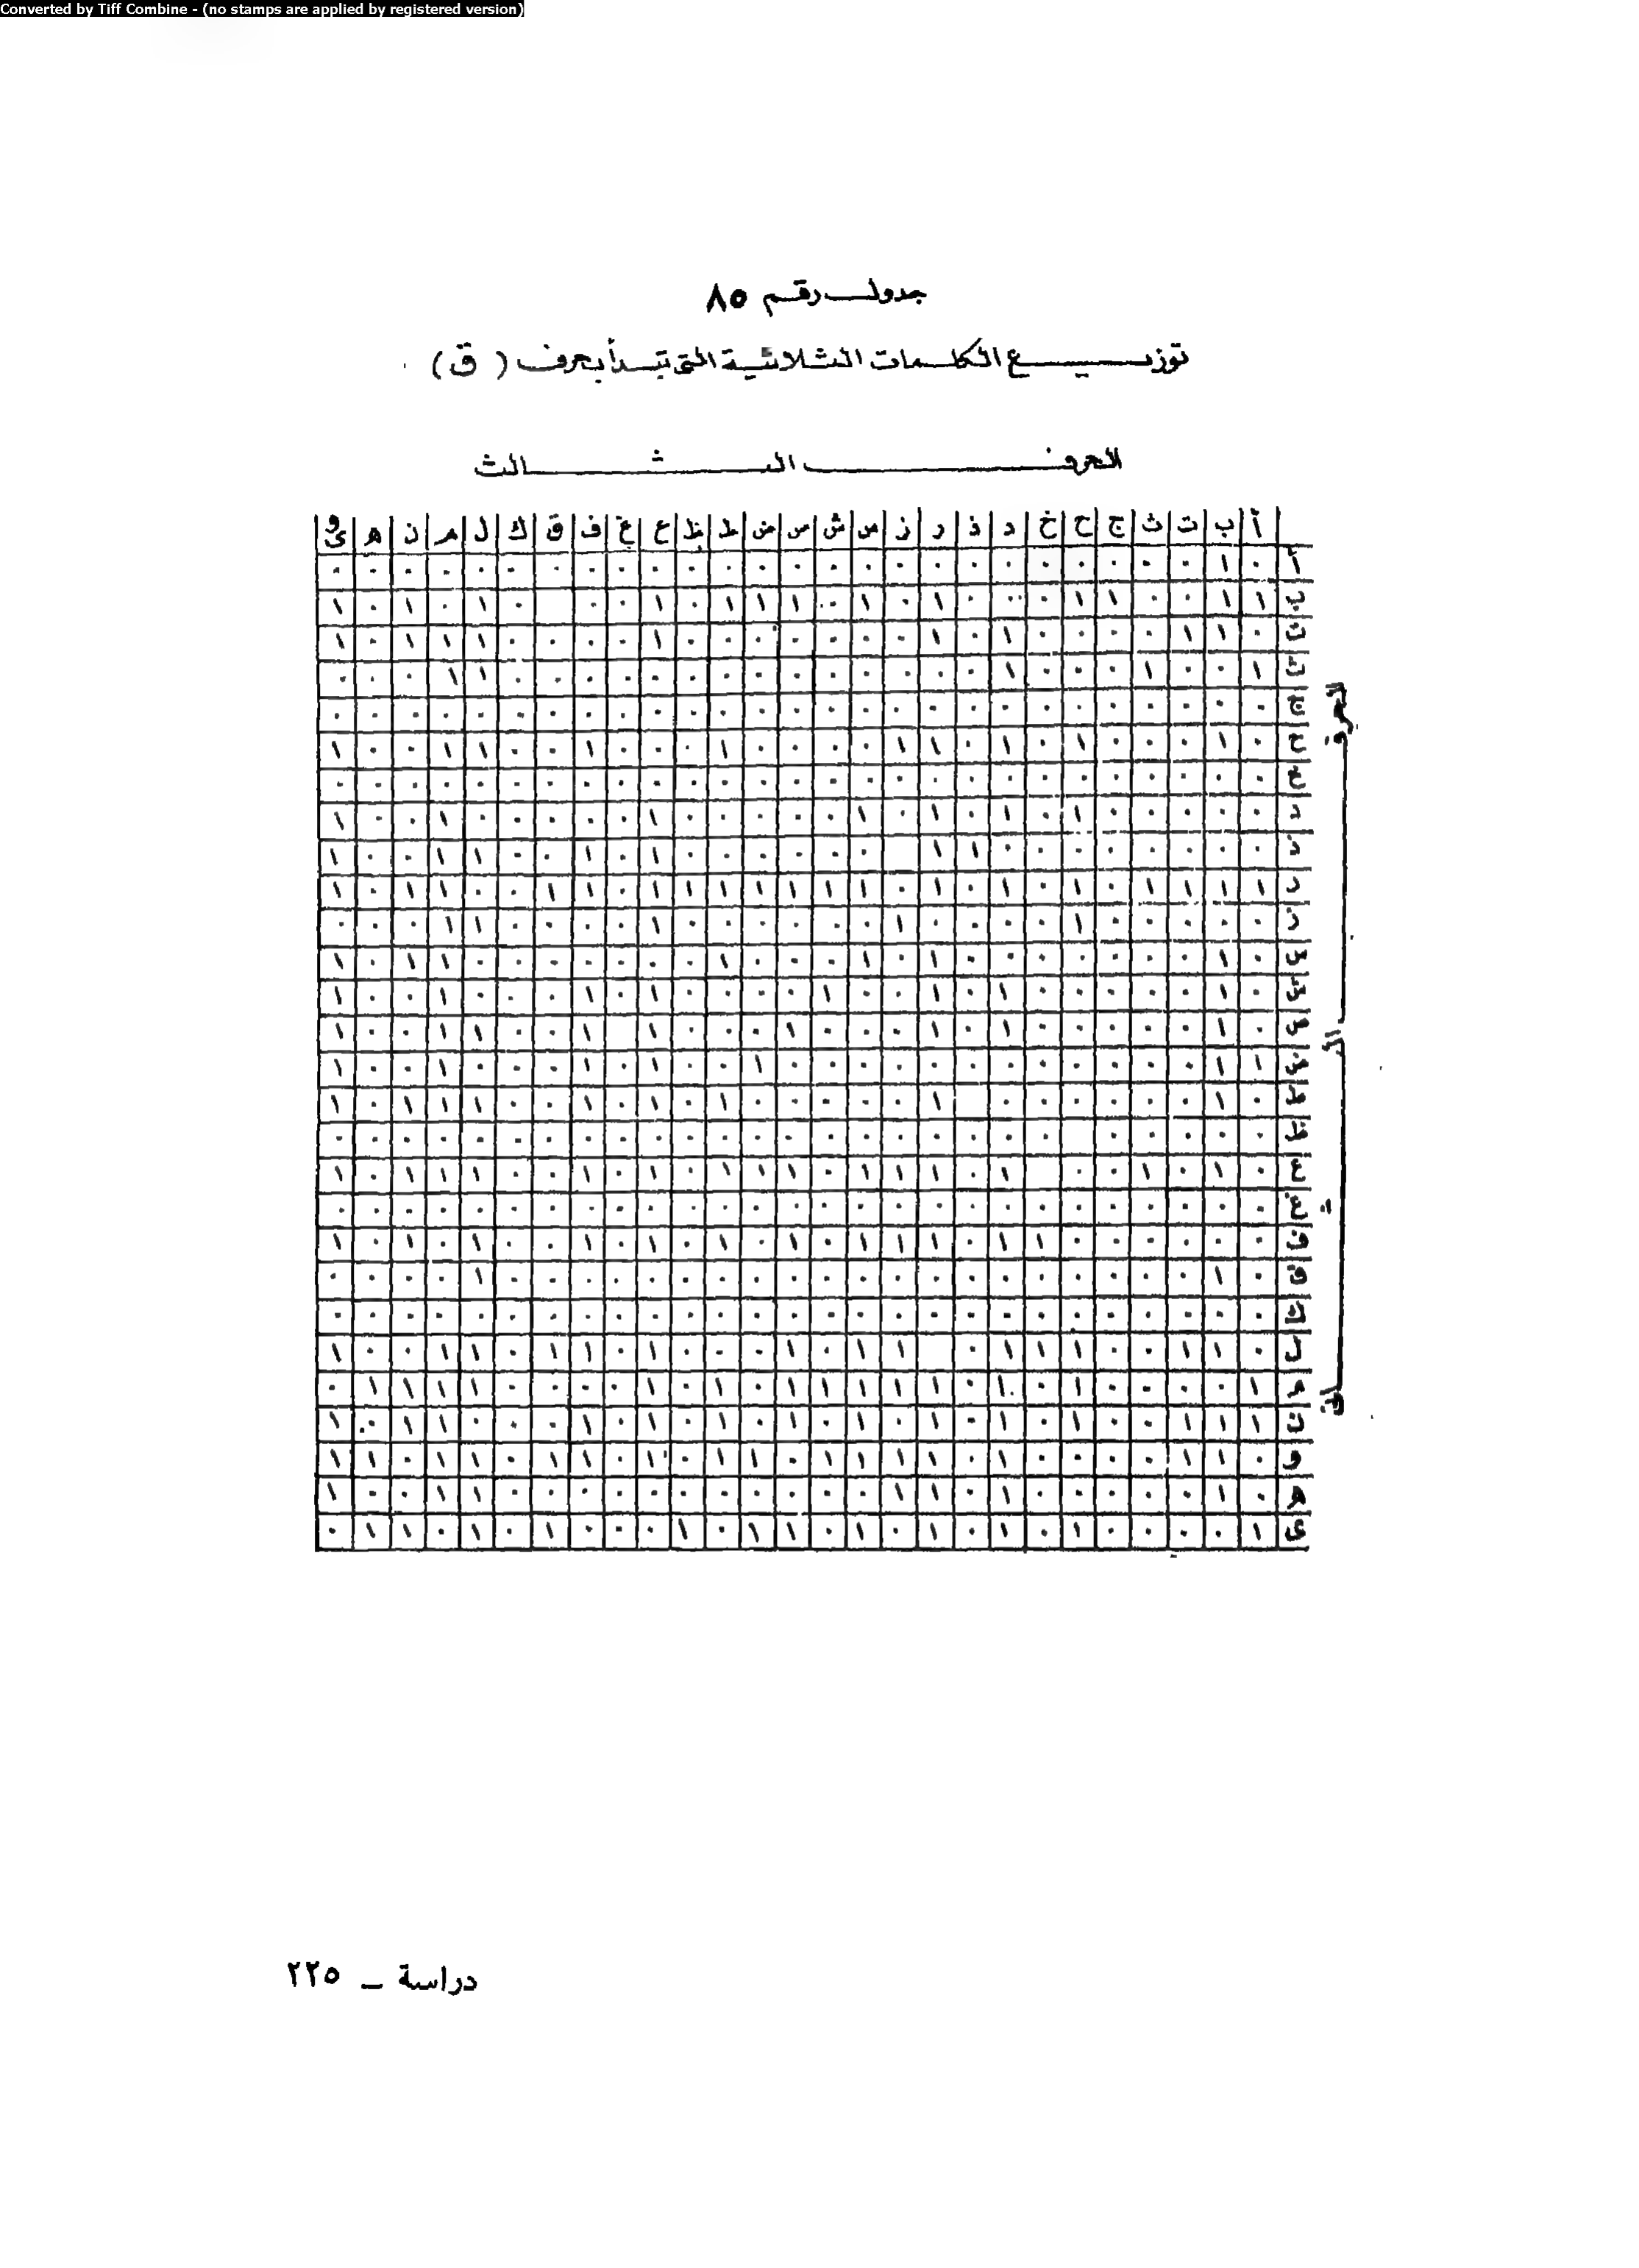 Converted by Tiff Combine - (no stamps are applied by registered version)
جدول رقم ٨٥
توزيع الكلمات الثلاثية التى تبدأ بحرف ( ق )
الحرف الثالث
أ ب ت ث ج ح خ د ذ ر ز س ش ص ض ط ظ ع غ ف ق ك ل م ن ه و ى
الحرف الثانى
أ ٠ ١ ٠ ٠ ٠ ٠ ٠ ٠ ٠ ٠ ٠ ٠ ٠ ٠ ٠ ٠ ٠ ٠ ٠ ٠ ٠ ٠ ٠ ٠ ٠ ٠ ٠
ب ١ ١ ٠ ٠ ١ ١ ٠ ٠ ٠ ١ ٠ ١ ٠ ١ ١ ١ ٠ ١ ٠ ٠ ٠ ١ ٠ ١ ٠ ١
ت ٠ ١ ١ ٠ ٠ ٠ ٠ ١ ٠ ١ ٠ ٠ ٠ ٠ ٠ ٠ ٠ ١ ٠ ٠ ٠ ٠ ١ ١ ١ ٠ ١
ث ١ ٠ ٠ ١ ٠ ٠ ٠ ١ ٠ ٠ ٠ ٠ ٠ ٠ ٠ ٠ ٠ ٠ ٠ ٠ ٠ ٠ ١ ١ ٠ ٠ ٠
ج ٠ ٠ ٠ ٠ ٠ ٠ ٠ ٠ ٠ ٠ ٠ ٠ ٠ ٠ ٠ ٠ ٠ ٠ ٠ ٠ ٠ ٠ ٠ ٠ ٠ ٠ ٠
ح ٠ ١ ٠ ٠ ٠ ١ ٠ ١ ٠ ١ ١ ٠ ٠ ٠ ٠ ١ ٠ ٠ ٠ ١ ٠ ٠ ١ ١ ٠ ٠ ١
خ ٠ ٠ ٠ ٠ ٠ ٠ ٠ ٠ ٠ ٠ ٠ ٠ ٠ ٠ ٠ ٠ ٠ ٠ ٠ ٠ ٠ ٠ ٠ ٠ ٠ ٠ ٠
د ٠ ٠ ٠ ٠ ٠ ١ ٠ ١ ٠ ١ ٠ ١ ٠ ٠ ٠ ٠ ٠ ١ ٠ ٠ ٠ ٠ ٠ ١ ٠ ٠ ١
ذ ٠ ٠ ٠ ٠ ٠ ٠ ٠ ٠ ١ ١ ٠ ٠ ٠ ٠ ٠ ٠ ١ ٠ ١ ٠ ٠ ١ ١ ٠ ٠ ١
ر ١ ١ ١ ١ ٠ ١ ٠ ١ ٠ ١ ٠ ١ ١ ١ ١ ١ ١ ١ ٠ ١ ١ ٠ ٠ ١ ١ ٠ ١
ز ٠ ٠ ٠ ٠ ٠ ١ ٠ ٠ ٠ ٠ ١ ٠ ٠ ٠ ٠ ٠ ٠ ١ ٠ ٠ ٠ ٠ ١ ١ ٠ ٠ ٠
س ٠ ١ ٠ ٠ ٠ ٠ ٠ ٠ ٠ ١ ٠ ١ ٠ ٠ ٠ ١ ٠ ٠ ٠ ٠ ٠ ٠ ٠ ١ ١ ٠ ١
ش ٠ ١ ٠ ٠ ٠ ٠ ٠ ١ ٠ ١ ٠ ٠ ١ ٠ ٠ ٠ ٠ ١ ٠ ١ ٠ ٠ ٠ ١ ٠ ٠ ١
ص ٠ ١ ٠ ٠ ٠ ٠ ٠ ١ ٠ ١ ٠ ٠ ٠ ١ ٠ ٠ ٠ ١ ١ ٠ ٠ ١ ١ ٠ ٠ ١
ض ١ ١ ٠ ٠ ٠ ٠ ٠ ٠ ٠ ٠ ٠ ٠ ٠ ٠ ١ ٠ ٠ ١ ٠ ١ ٠ ٠ ٠ ١ ٠ ٠ ١
ط ٠ ١ ٠ ٠ ٠ ٠ ٠ ٠ ١ ٠ ٠ ٠ ٠ ٠ ١ ٠ ١ ٠ ١ ٠ ٠ ١ ١ ١ ٠ ١
ظ ٠ ٠ ٠ ٠ ٠ ٠ ٠ ٠ ٠ ٠ ٠ ٠ ٠ ٠ ٠ ٠ ٠ ٠ ٠ ٠ ٠ ٠ ٠ ٠ ٠ ٠
ع ٠ ١ ٠ ١ ٠ ٠ ١ ٠ ١ ١ ١ ٠ ١ ١ ١ ٠ ١ ٠ ١ ٠ ٠ ١ ١ ١ ٠ ١
غ ٠ ٠ ٠ ٠ ٠ ٠ ٠ ٠ ٠ ٠ ٠ ٠ ٠ ٠ ٠ ٠ ٠ ٠ ٠ ٠ ٠ ٠ ٠ ٠ ٠ ٠ ٠
ف ٠ ٠ ٠ ٠ ٠ ٠ ١ ١ ٠ ١ ١ ١ ٠ ١ ٠ ١ ٠ ١ ٠ ١ ٠ ٠ ١ ٠ ١ ٠ ١
ق ٠ ١ ٠ ٠ ٠ ٠ ٠ ٠ ٠ ٠ ٠ ٠ ٠ ٠ ٠ ٠ ٠ ٠ ٠ ٠ ٠ ٠ ١ ٠ ٠ ٠ ٠
ك ٠ ٠ ٠ ٠ ٠ ٠ ٠ ٠ ٠ ٠ ٠ ٠ ٠ ٠ ٠ ٠ ٠ ٠ ٠ ٠ ٠ ٠ ٠ ٠ ٠ ٠ ٠
ل ٠ ١ ١ ٠ ٠ ١ ١ ١ ٠ ١ ١ ٠ ١ ٠ ٠ ٠ ١ ٠ ١ ١ ٠ ١ ١ ٠ ٠ ١
م ١ ٠ ٠ ٠ ٠ ١ ٠ ١ ٠ ١ ١ ١ ١ ١ ٠ ١ ٠ ١ ٠ ٠ ٠ ٠ ١ ١ ١ ١ ٠
ن ١ ١ ١ ٠ ٠ ١ ٠ ١ ٠ ١ ٠ ١ ٠ ١ ٠ ١ ٠ ١ ٠ ١ ٠ ٠ ٠ ١ ١ ٠ ١
و ٠ ١ ١ ٠ ٠ ٠ ٠ ١ ٠ ١ ١ ١ ١ ٠ ١ ١ ٠ ١ ٠ ١ ١ ٠ ١ ١ ٠ ١ ١
ه ٠ ١ ٠ ٠ ٠ ٠ ٠ ١ ٠ ١ ١ ٠ ٠ ٠ ٠ ٠ ٠ ٠ ٠ ٠ ٠ ٠ ١ ١ ٠ ٠ ١
ى ١ ٠ ٠ ٠ ٠ ١ ٠ ١ ٠ ١ ٠ ١ ٠ ١ ١ ٠ ١ ٠ ٠ ٠ ١ ٠ ١ ٠ ١ ١ ٠
دراسة ــ ٢٢٥